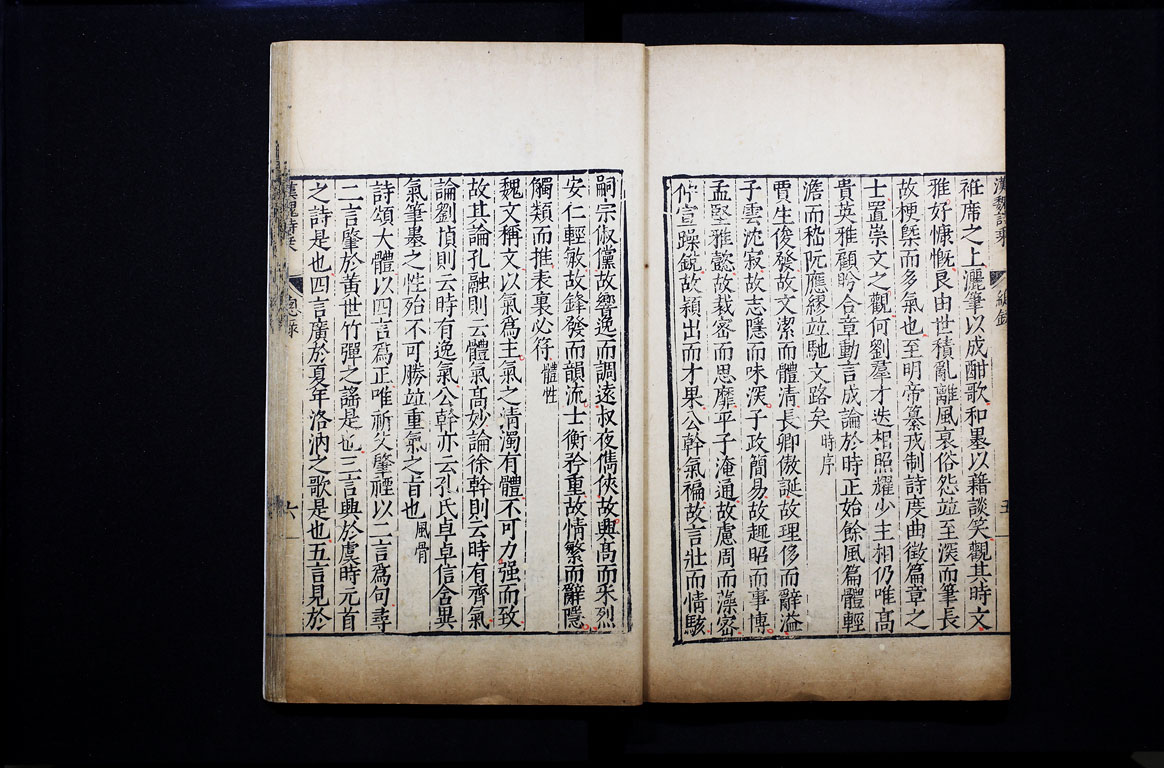 漢魏詩乘
總錄
五
袵席之上灑筆以成酣歌和墨以藉談笑觀其時文
雅好慷慨良由世積亂離風哀俗怨竝至深而筆長
故梗槩而多氣也至明帝纂戎制詩度曲徵篇章之
士置崇文之觀何劉羣才迭相照耀少主相仍唯高
貴英雅顧盻合章動言成論於時正始餘風篇體輕
澹而嵇阮應繆竝馳文路矣時序
賈生俊發故文潔而體清長卿傲誕故理侈而辭溢
子雲沈寂故志隱而味深子政簡易故趣昭而事博
孟堅雅懿故裁密而思靡平子淹通故慮周而藻密
仲宣躁銳故穎出而才果公幹氣褊故言壯而情駭
嗣宗俶儻故響逸而調遠叔夜儁俠故興高而采烈
安仁輕敏故鋒發而韻流士衡矜重故情繁而辭隱
觸類而推表裏必符體性
魏文稱文以氣為主氣之清濁有體不可力强而致
故其論孔融則云體氣高妙論徐幹則云時有齊氣
論劉楨則云時有逸氣公幹亦云孔氏卓卓信含異
氣筆墨之性殆不可勝竝重氣之旨也風骨
詩頌大體以四言為正唯祈父肇禋以二言為句尋
二言肇於黃世竹彈之謠是也三言興於虞時元首
之詩是也四言廣於夏年洛汭之歌是也五言見於
漢魏詩乘
總錄
六